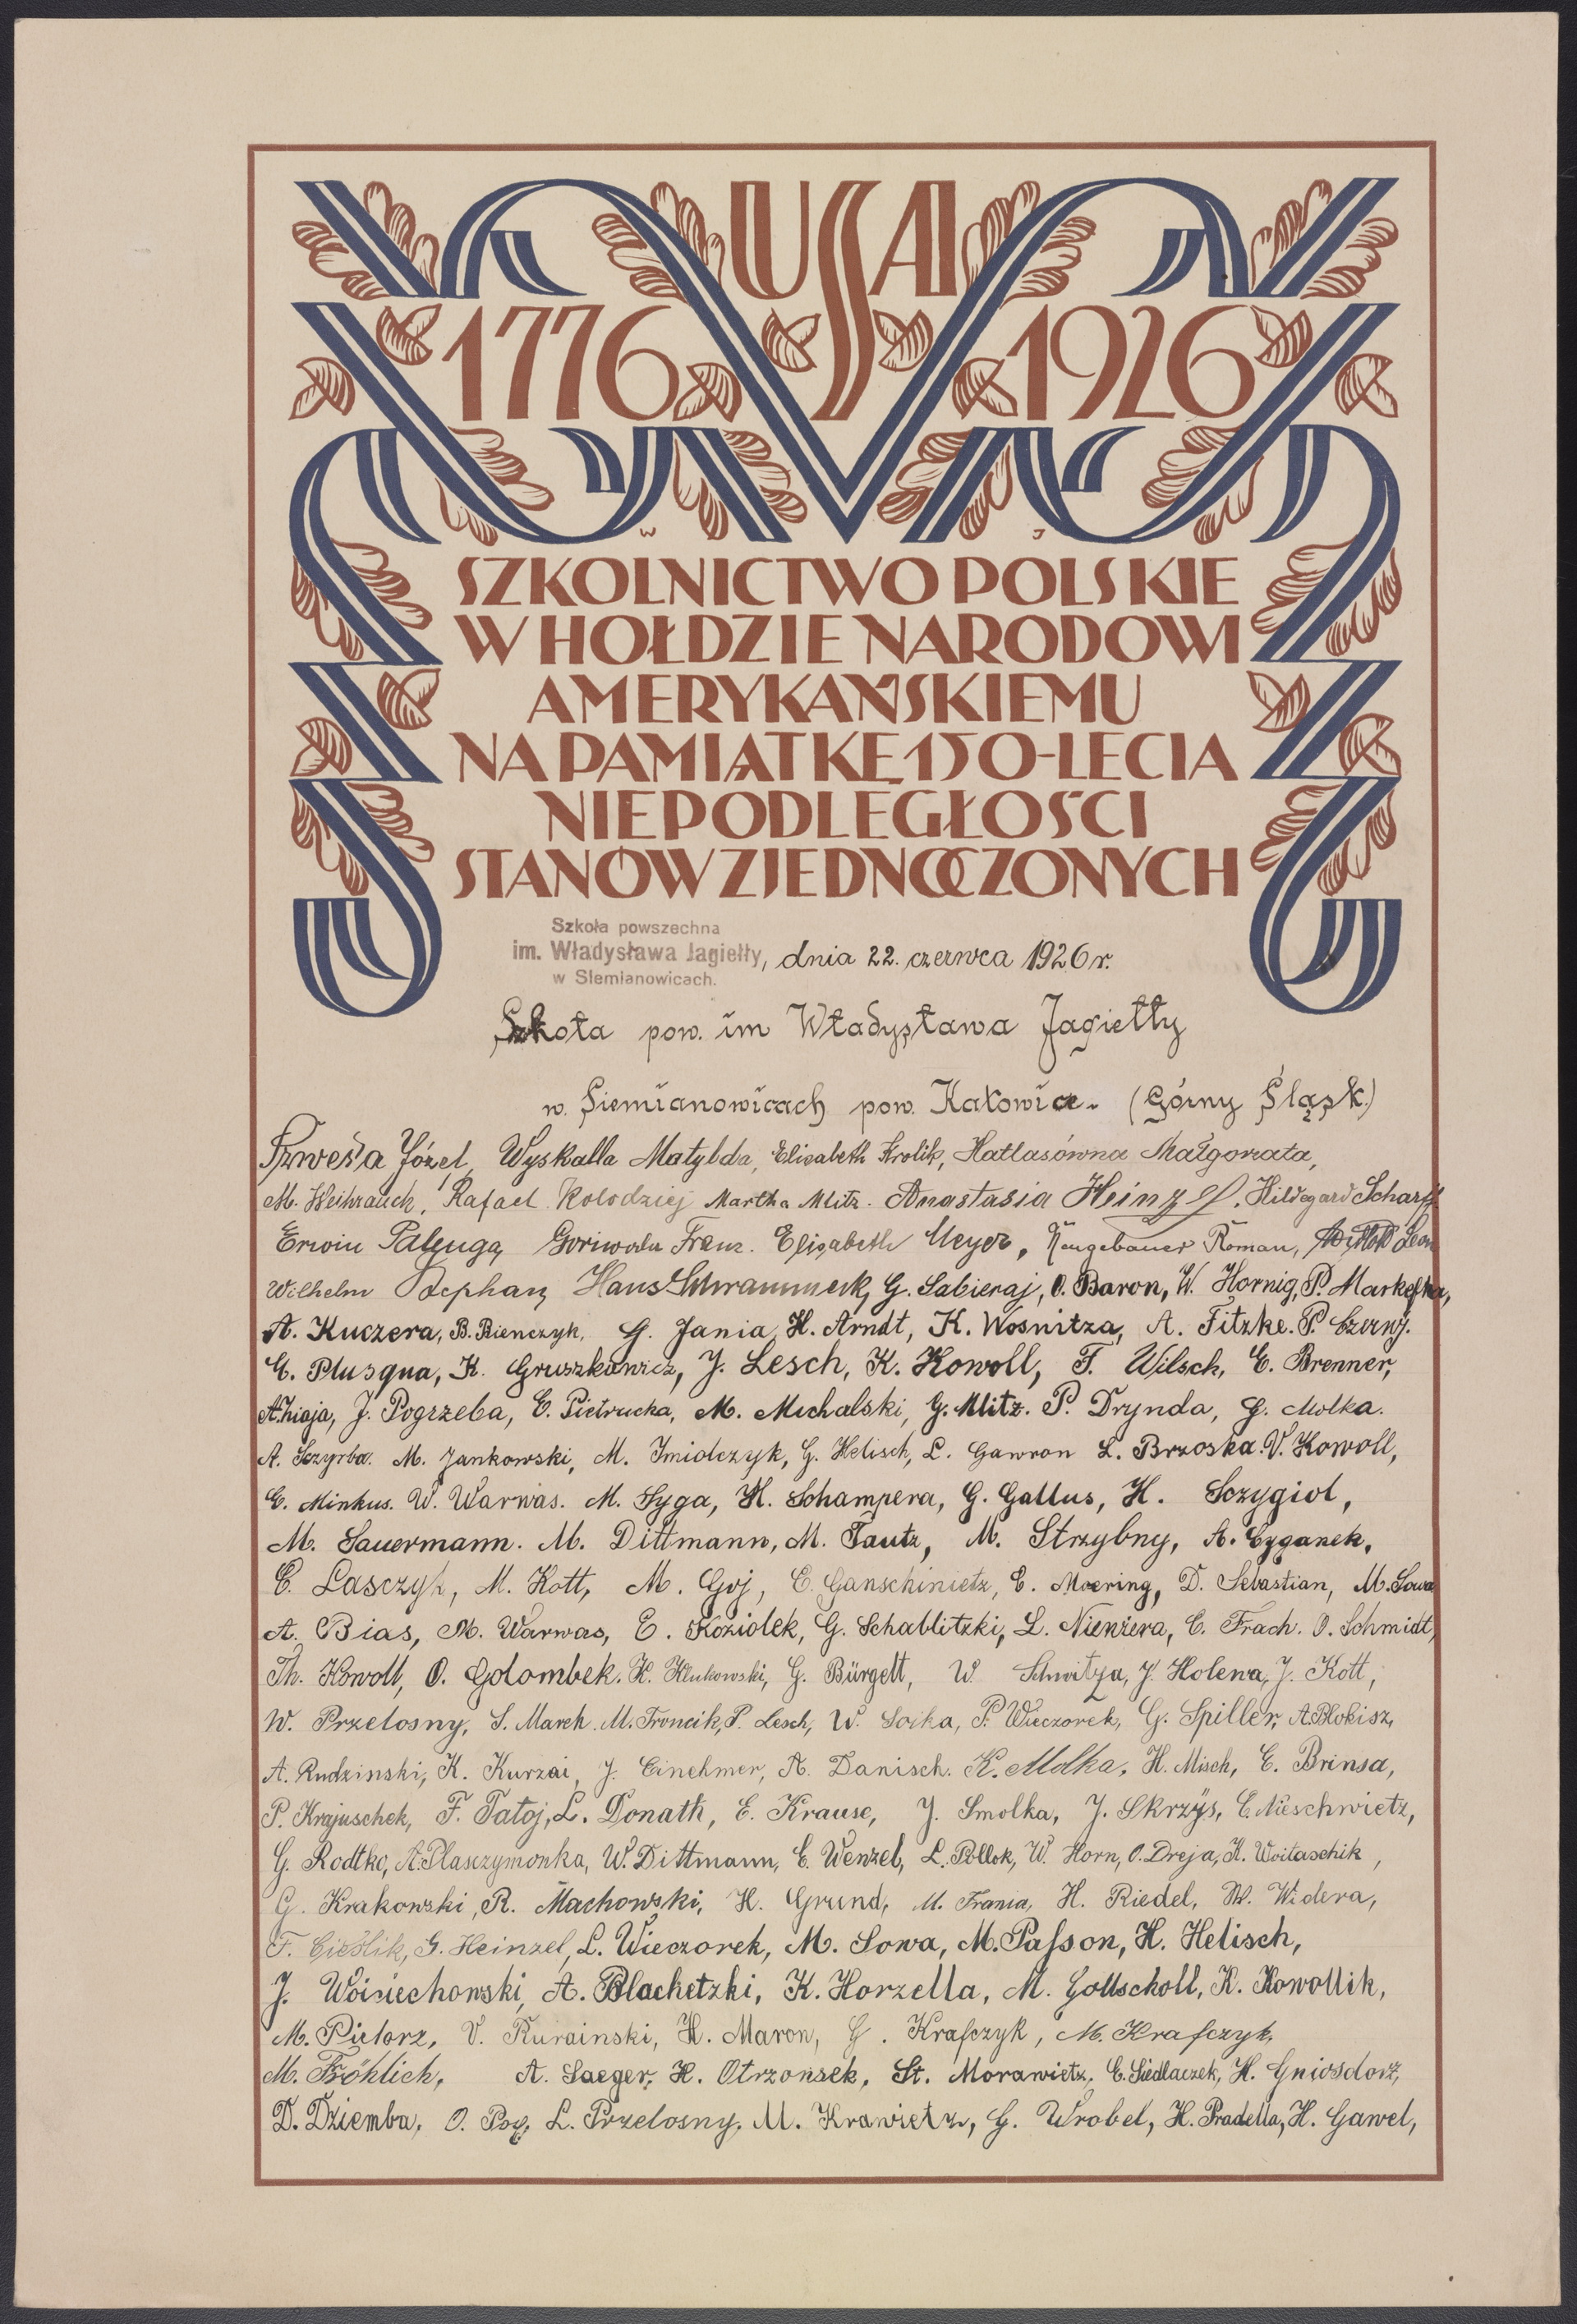 USA
1776 1926
W J
SZKOLNICTWO POLSKIE
W HOŁDZIE NARODOWI
AMERYKAŃSKIEMU
NA PAMIĄTKĘ 150-LECIA
NIEPODLEGŁOŚCI
STANÓW ZJEDNOCZONYCH
Szkoła powszechna
im. Władysława Jagiełły, dnia 22. czerwca 1926 r.
w Siemianowicach.
Szkoła pow. im Władysława Jagiełły
w. Siemianowicach pow. Katowice. (Górny Śląsk.)
Józef, Wyskalla Matylda, Elisabeth Krolik, Hatlasówna Małgorzata,
M. Weihrauch, Rafael Kolodziej Martha Mlitz. Anastasia Heinzel, Hildegard Scharff
Erwin Palenga, Franz. Elisabeth Meyer, Neugebauer Roman, Leon
Wilhelm Stephan, Hans Schrammeck, G. Sabieraj, O. Baron, W. Hornig, P. Markefka,
A. Kuczera, B. Bienczyk, G. Jania, H. Arndt, K. Wosnitza, A. Fitzke. P. Czerny.
E. Plusqua, K. Gruszkawicz, J. Lesch, K. Kowoll, F. Wilsch, E. Brenner,
A. Chiaja, J. Pogrzeba, E. Pietrucka, M. Michalski, G. Mlitz. P. Drynda, G. Molka.
A. Sczyrba. M. Jankowski, M. Imiolczyk, G. Helisch, L. Gawron L. Brzoska. V. Kowoll,
E. Minkus. W. Warwas. M. Syga, H. Schampera, G. Gallus, H. Sczygiol,
M. Sauermann. M. Dittmann, M. Tautz, M. Strzybny, A. Cyganek,
E. Lasczyk, M. Kott, M. Goj, E. Ganschinietz, E. Moering, D. Sebastian, M. Sowa
A. Bias, M. Warwas, E. Koziolek, G. Schablitzki, L. Nieużera, E. Frach. O. Schmidt,
Th. Kowoll, O. Golombek. H. Klukowski, G. Bürgelt, W. Schwitza, J. Holewa, J. Kott,
W. Przelosny, S. Marek. M. Froncik, P. Lesch, W. Soika, P. Wieczorek, G. Spiller, A. Blokisz,
A. Rudzinski, K. Kurzai, J. Einehmer, A. Danisch. K. Molka. H. Misch, E. Brinsa,
P. Krajuschek, F. Patoj, L. Donath, E. Krause, J. Smolka, J. Skrzÿs, E. Nieschwietz,
G. Rodtko, A. Plasczymonka, W. Dittmann, E. Wenzel, L. Pollok, W. Horn, O. Dreja, H. Woitaschik,
G. Krakowski, R. Machowski, H. Grund, M. Frania, H. Riedel, W. Widera,
F. Cieślik, G. Heinzel, L. Wieczorek, M. Sowa, M. Paſson, H. Helisch,
J. Woiciechowski, A. Blachetzki, K. Horzella, M. Gottscholl, K. Kowollik,
M. Pietorz, V. Rurainski, H. Maron, G. Kraſczyk, M. Kraſczyk,
M. Fröhlich, A. Saeger, H. Otrzonsek, St. Morawietz, E. Siedlaczek, H. Gniosdorz,
D. Dziemba, O. L. Przelosny. M. Krawietz, G. Wrobel, H. Pradella, H. Gawel,